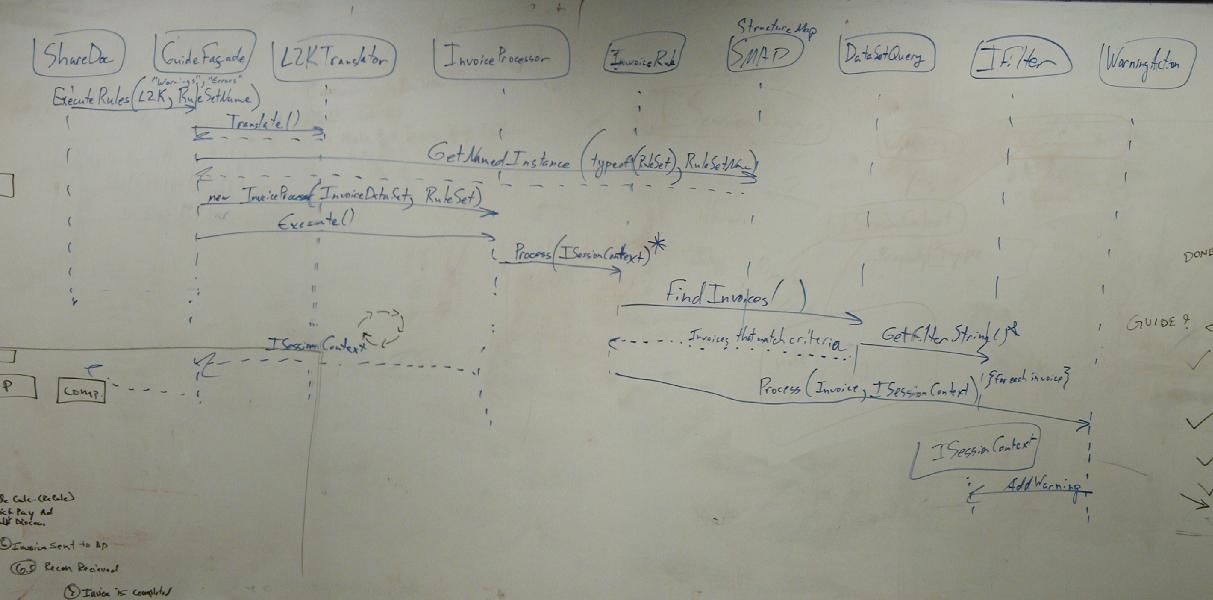 Structure Map
ShareDoc GuideFaçade L2KTranslator InvoiceProcessor InvoiceRule SMAP DataSetQuery IFilter WarningAction
"Warnings", "Errors"
ExecuteRules(L2K, RuleSetName)
Translate()
GetNamedInstance (typeof(RuleSet), RuleSetName)
new InvoiceProcess(InvoiceDataSet, RuleSet)
Execute()
Process(ISessionContext)*
DONE
FindInvoices( )
GUIDE?
Invoices that match criteria
GetFilterString()*
ISessionContext
Process(Invoice, ISessionContext) {for each invoice}
P
Comp.
ISessionContext
AddWarning
Pay
Invoice Sent to AP
6.5 Recon Recieved
Invoice is completed